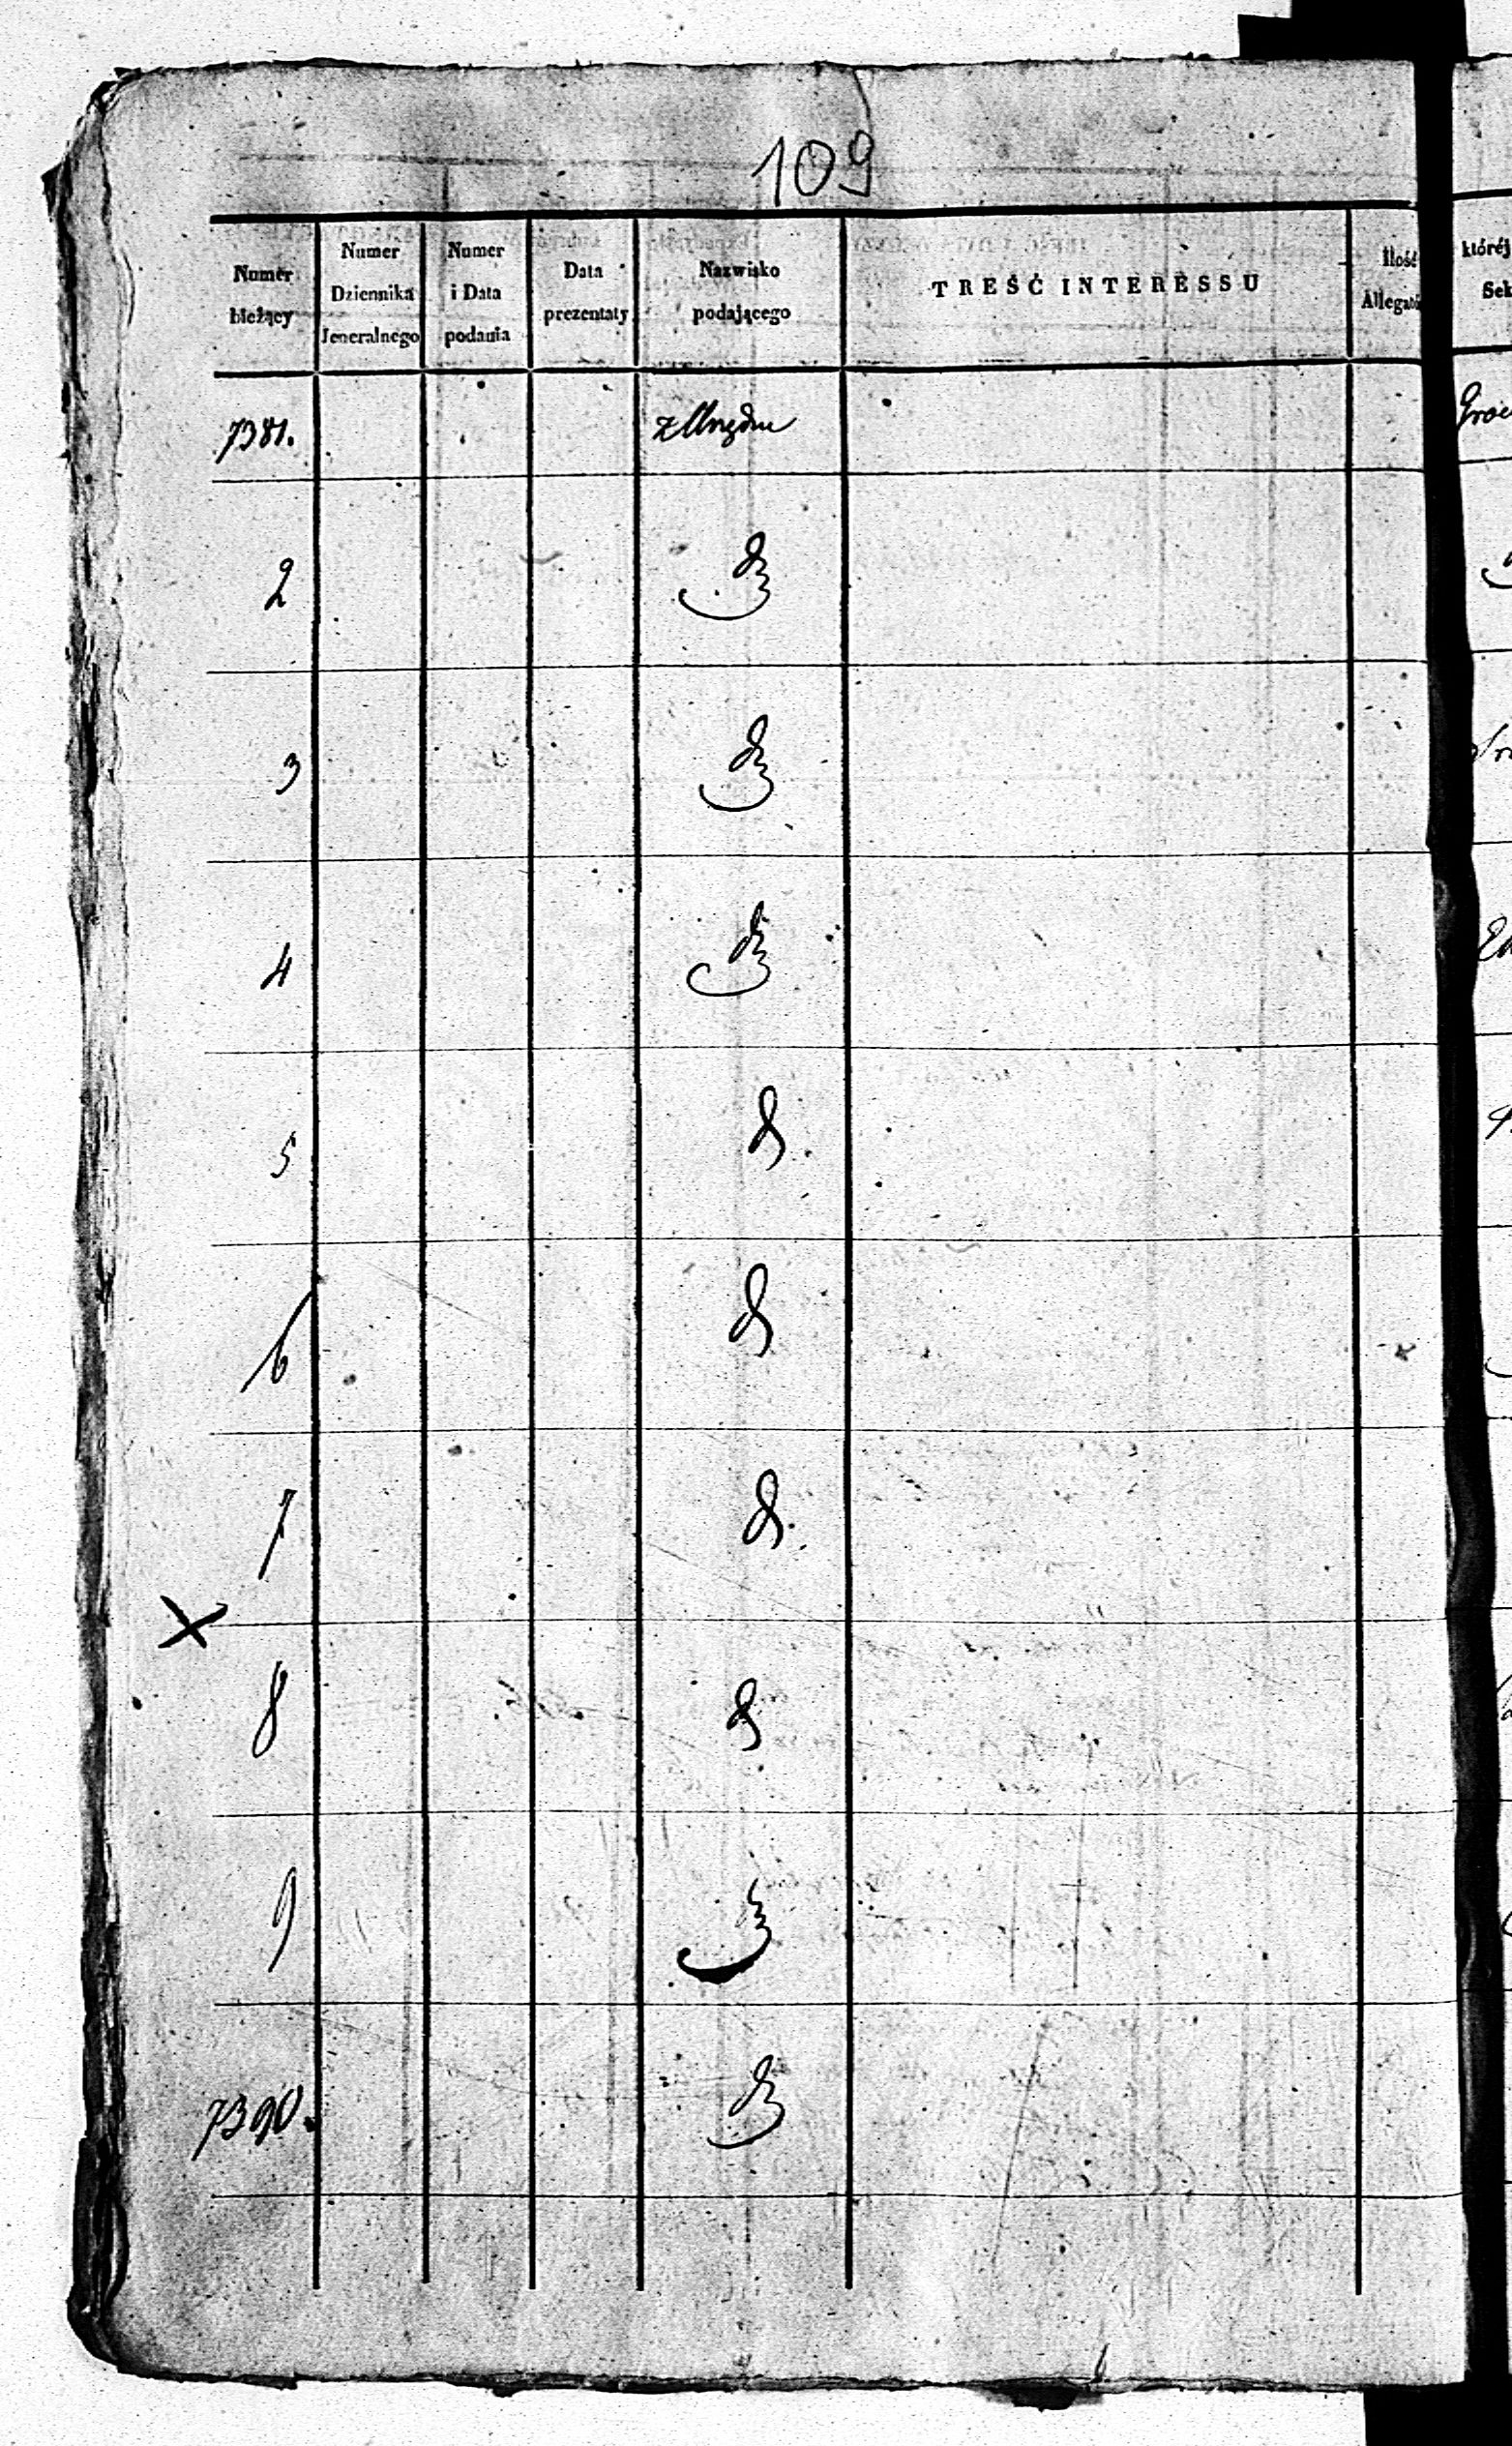 109
Numer bieżący
Numer Dziennika Jeneralnego
Numer i Data podania
Data prezentaty
Nazwisko podającego
TREŚĆ INTERESSU
Ilość
której
Sek
7381. z Urzędu
2
3
4
5
6
7
8
9
7390.